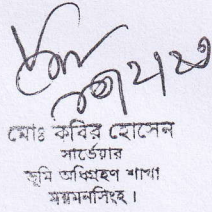 মোঃ কবির হোসেন
সার্ভেয়ার
ভূমি অধিগ্রহণ শাখা
ময়মনসিংহ।